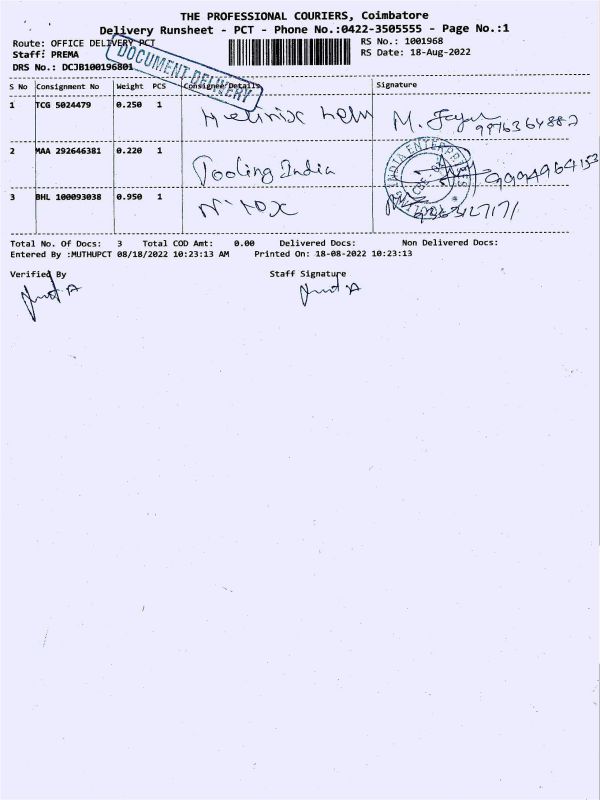 THE PROFESSIONAL COURIERS, Coimbatore
Delivery Runsheet - PCT - Phone No.:0422-3505555 - Page No.:1
Route: OFFICE DELIVERY PCT
RS No.: 1001968
Staff: PREMA
RS Date: 18-Aug-2022
DRS No.: DCJB100196801
DOCUMENT DELIVERY
S No Consignment No Weight PCS Consignee Details Signature
1 TCG 5024479 0.250 1
M.
2 MAA 292646381 0.220 1 Tooling India 9994964153
3 BHL 100093038 0.950 1 9363127171
Total No. Of Docs: 3 Total COD Amt: 0.00 Delivered Docs: Non Delivered Docs:
Entered By :MUTHUPCT 08/18/2022 10:23:13 AM Printed On: 18-08-2022 10:23:13
Verified By Staff Signature